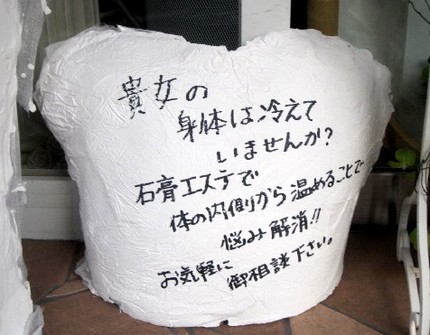 貴女の
身体は冷えて
いませんか?
石膏エステで
体の内側から温めることで
悩み解消!!
お気軽に
御相談下さい。